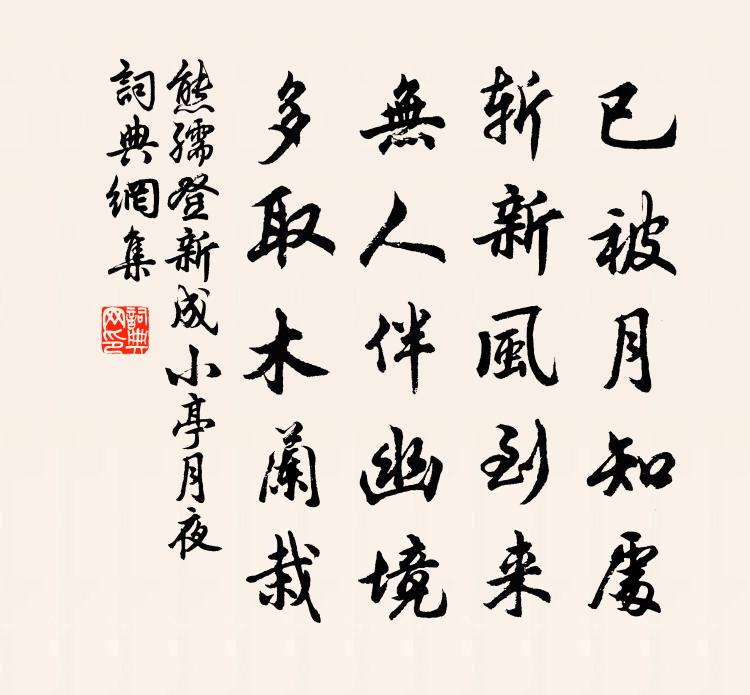 已被月知處
斬新風到來
無人伴幽境
多取木蘭栽
熊孺登新成小亭月夜
詞典網集
詞典
网印